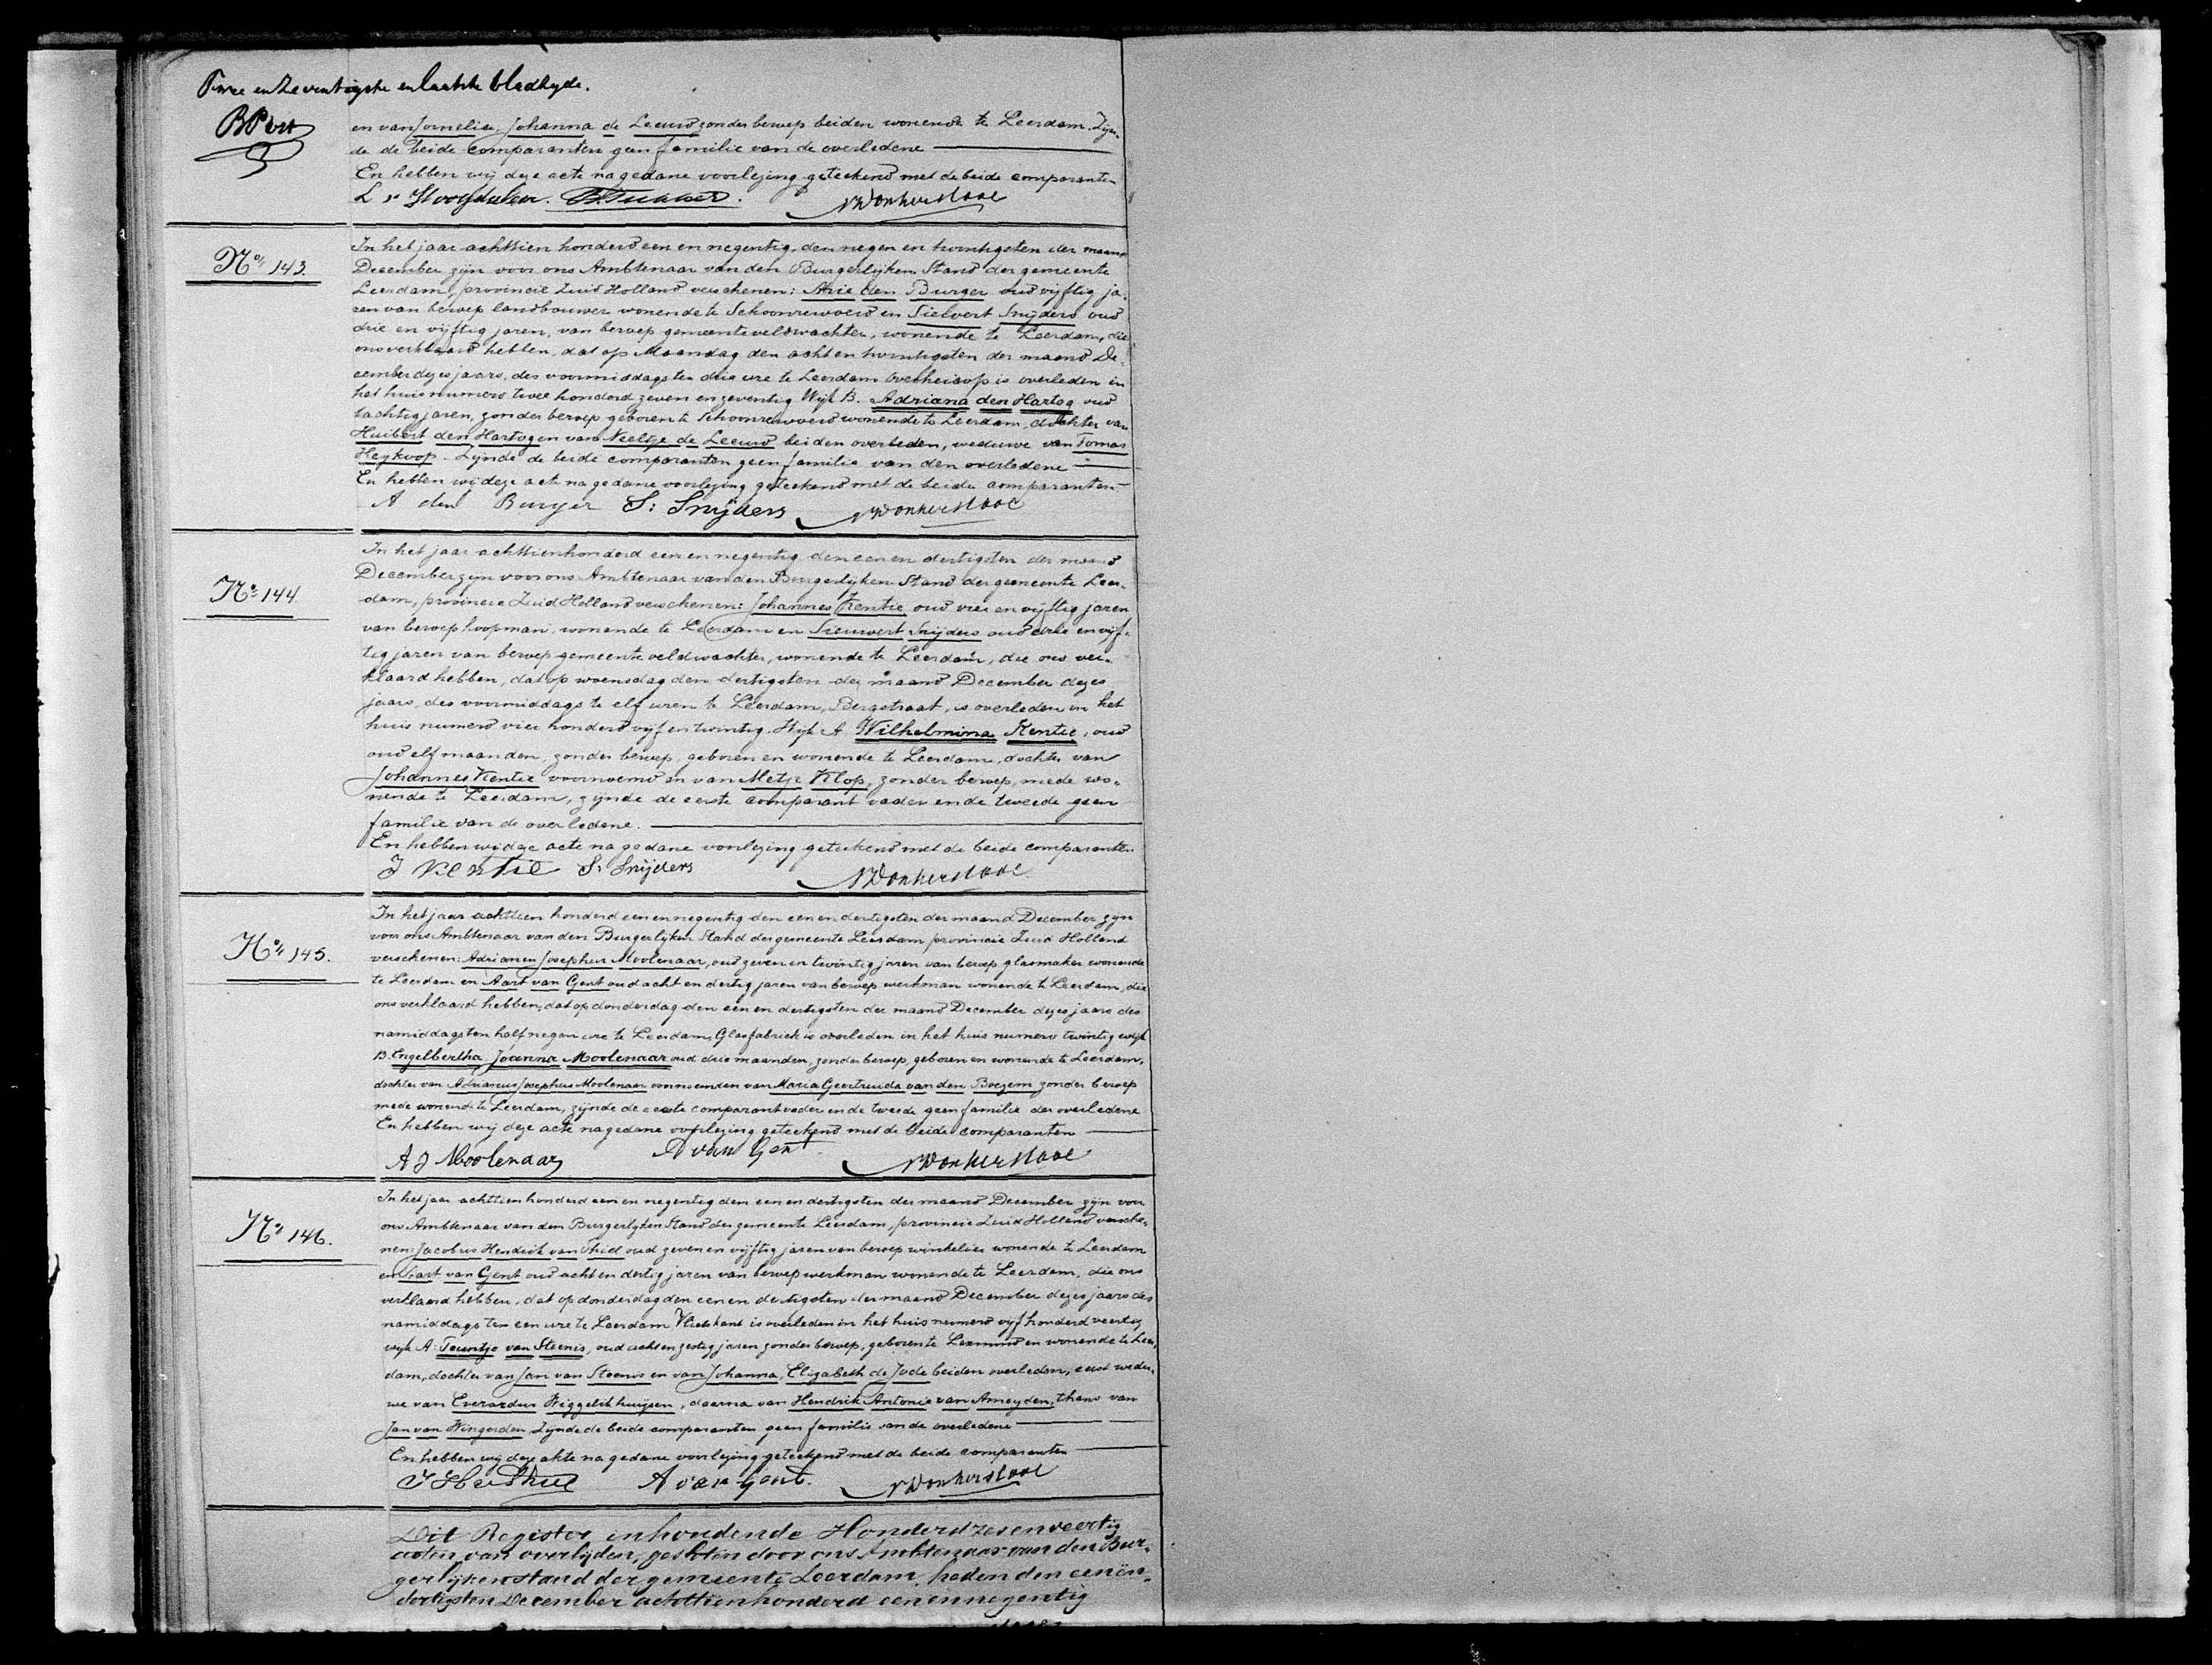 Twee en Zeventigste en laatste bladzyde.
en van Cornelia Johanna de Leeuw zonder beroep beiden wonende te Leerdam. Zijn-
de de beide comparanten geen familie van de overledene
En hebben wij deze acte na gedane voorlezing geteekend met de beide comparanten
Nº 143.
In het jaar achttien honderd een en negentig, den negen en twintigsten der maand
December zijn voor ons Ambtenaar van den Burgerlijken Stand der gemeente
Leerdam, provincie Zuid Holland verschenen: Arie den Burger oud vijftig ja-
ren van beroep landbouwer wonende te Schoonrewoerd en Sielvert Snijders oud
drie en vijftig jaren, van beroep gemeenteveldwachter, wonende te Leerdam, die
ons verklaard hebben, dat op Maandag den acht en twintigsten der maand De-
cember dezes jaars, des voormiddags ten drie ure te Leerdam Overheicop is overleden in
het huis numero twee honderd zeven en zeventig Wijk B. Adriana den Hartog oud
tachtig jaren, zonder beroep geboren te Schoonrewoerd wonende te Leerdam, dochter van
Huibert den Hartog en van Neeltje de Leeuw beiden overleden, weduwe van Tomas
Heykoop. Zijnde de beide comparanten geen familie van den overledene
En hebben wij deze acte na gedane voorlezing geteekend met de beide comparanten
A den Burger S: Snijders
Nº 144
In het jaar achttienhonderd een en negentig den een en dertigsten der maand
December zijn voor ons Ambtenaar van den Burgerlyken Stand der gemeente Leer-
dam, provincie Zuid Holland verschenen: Johannes Kentie oud vier en vijftig jaren
van beroep koopman, wonende te Leerdam en Sieuwert Snijders oud drie en vijf-
tig jaren van beroep gemeente veldwachter, wonende te Leerdam, die ons ver-
klaard hebben, dat op woensdag den dertigsten der maand December dezes
jaars, des voormiddags te elf uren te Leerdam, Bergstraat, is overleden in het
huis numero vier honderd vijf en twintig Wijk A Wilhelmina Kentie, oud
oud elf maanden, zonder beroep, geboren en wonende te Leerdam, dochter van
Johannes Kentie voornoemd en van Metje Klop, zonder beroep, mede wo-
nende te Leerdam, zijnde de eerste comparant vader en de tweede geen
familie van de overledene.
En hebben wij deze acte na gedane voorlezing geteekend met de beide comparanten.
J Kentie S: Snijders
Nº 145.
In het jaar achttien honderd een en negentig den een en dertigsten der maand December zijn
voor ons Ambtenaar van den Burgerlijken Stand der gemeente Leerdam provincie Zuid Holland
verschenen: Adrianus Josephus Moolenaar, oud zeven en twintig jaren van beroep glasmaker wonende
te Leerdam en Aart van Gent oud acht en dertig jaren van beroep werkman wonende te Leerdam, die
ons verklaard hebben, dat op donderdag den een en dertigsten der maand December dezes jaars des
namiddags ten half negen ure te Leerdam, Glasfabriek is overleden in het huis numero twintig wijk
B. Engelbertha Joanna Moolenaar oud drie maanden, zonder beroep, geboren en wonende te Leerdam,
dochter van Adrianus Josephus Moolenaar voornoemd en van Maria Geertruida van den Boezem zonder beroep
mede wonende te Leerdam, zijnde de eerste comparant vader en de tweede geen familie der overledene
En hebben wij deze acte na gedane voorlezing geteekend met de beide comparanten
A J Moolenaar A van Gent
Nº 146.
In het jaar achttien honderd een en negentig den een en dertigsten der maand December zijn voor
ons Ambtenaar van den Burgerlyken Stand der gemeente Leerdam, provincie Zuid Holland versche-
nen: Jacobus Hendrik van Thiel oud zeven en vijftig jaren van beroep winkelier wonende te Leerdam
en Aart van Gent oud acht en dertig jaren van beroep werkman wonende te Leerdam, die ons
verklaard hebben, dat op donderdag den een en dertigsten der maand December dezes jaars des
namiddags ten een ure te Leerdam Vlietskant is overleden in het huis numero vijf honderd veertig
wijk A. Teuntje van Steenis, oud acht en zestig jaren zonder beroep, geboren te Lexmond en wonende te Leer-
dam, dochter van Jan van Steenis en van Johanna, Elizabeth de Jode beiden overleden, eerst wedu-
we van Everardus Wiggelikhuijsen, daarna van Hendrik Antonie van Ameyden, thans van
Jan van Wingerden Zijnde de beide comparanten geen familie van de overledene
En hebben wij deze akte na gedane voorlezing geteekend met de beide comparanten
A van Gent.
Dit Register inhoudende Honderd zes en veertig
acten van overlijden, gesloten door ons Ambtenaar van den Bur-
gerlijken stand der gemeente Leerdam, heden den een en
dertigsten December achttienhonderd een en negentig